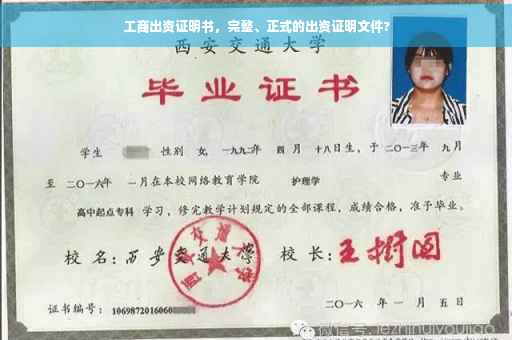 工商出资证明书，完整、正式的出资证明文件？
西安交通大学
毕业证书
学生 性别 女, 一九九二年 四 月 十八日生, 于 二〇一三年 九 月
至 二〇一六年 一月在本校网络教育学院 护理学 专业
高中起点专科 学习, 修完教学计划规定的全部课程, 成绩合格, 准予毕业。
校 名: 西安交通大学 校 长: 王树国
西安交通大学
证书编号: 1069872016060
二〇一六 年 一 月 五 日
微信号: jezhinuiyoujiao